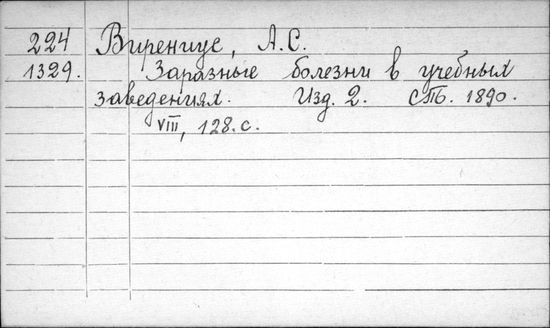 224 Вирениус, А.С.
1329. Заразные болезни в учебных
заведениях. Изд. 2. СПб. 1890.
VIII, 128.с.